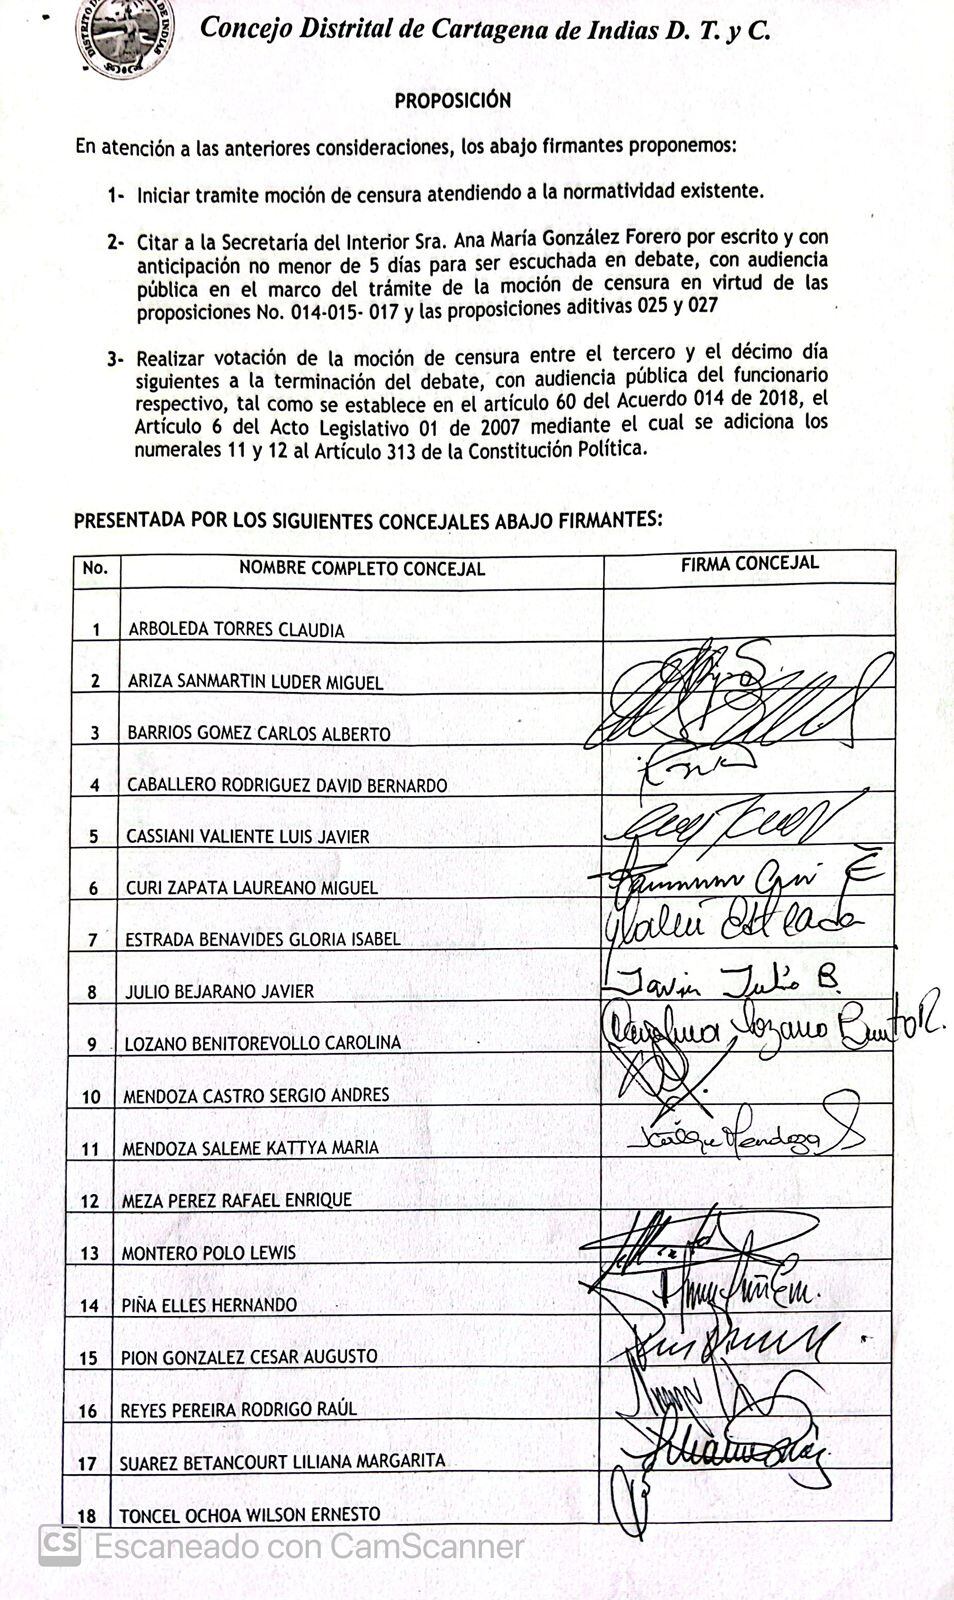 Concejo Distrital de Cartagena de Indias D. T. y C.
PROPOSICIÓN
En atención a las anteriores consideraciones, los abajo firmantes proponemos:
1- Iniciar tramite moción de censura atendiendo a la normatividad existente.
2- Citar a la Secretaría del Interior Sra. Ana María González Forero por escrito y con
anticipación no menor de 5 días para ser escuchada en debate, con audiencia
pública en el marco del trámite de la moción de censura en virtud de las
proposiciones No. 014-015- 017 y las proposiciones aditivas 025 y 027
3- Realizar votación de la moción de censura entre el tercero y el décimo día
siguientes a la terminación del debate, con audiencia pública del funcionario
respectivo, tal como se establece en el artículo 60 del Acuerdo 014 de 2018, el
Artículo 6 del Acto Legislativo 01 de 2007 mediante el cual se adiciona los
numerales 11 y 12 al Artículo 313 de la Constitución Política.
PRESENTADA POR LOS SIGUIENTES CONCEJALES ABAJO FIRMANTES:
No. NOMBRE COMPLETO CONCEJAL FIRMA CONCEJAL
1 ARBOLEDA TORRES CLAUDIA
2 ARIZA SANMARTIN LUDER MIGUEL
3 BARRIOS GOMEZ CARLOS ALBERTO
4 CABALLERO RODRIGUEZ DAVID BERNARDO
5 CASSIANI VALIENTE LUIS JAVIER
6 CURI ZAPATA LAUREANO MIGUEL
7 ESTRADA BENAVIDES GLORIA ISABEL Estrada
8 JULIO BEJARANO JAVIER Javier Julio B.
9 LOZANO BENITOREVOLLO CAROLINA Carolina Lozano Benito R.
10 MENDOZA CASTRO SERGIO ANDRES
11 MENDOZA SALEME KATTYA MARIA Mendoza S
12 MEZA PEREZ RAFAEL ENRIQUE
13 MONTERO POLO LEWIS
14 PIÑA ELLES HERNANDO
15 PION GONZALEZ CESAR AUGUSTO
16 REYES PEREIRA RODRIGO RAÚL
17 SUAREZ BETANCOURT LILIANA MARGARITA
18 TONCEL OCHOA WILSON ERNESTO
CS Escaneado con CamScanner